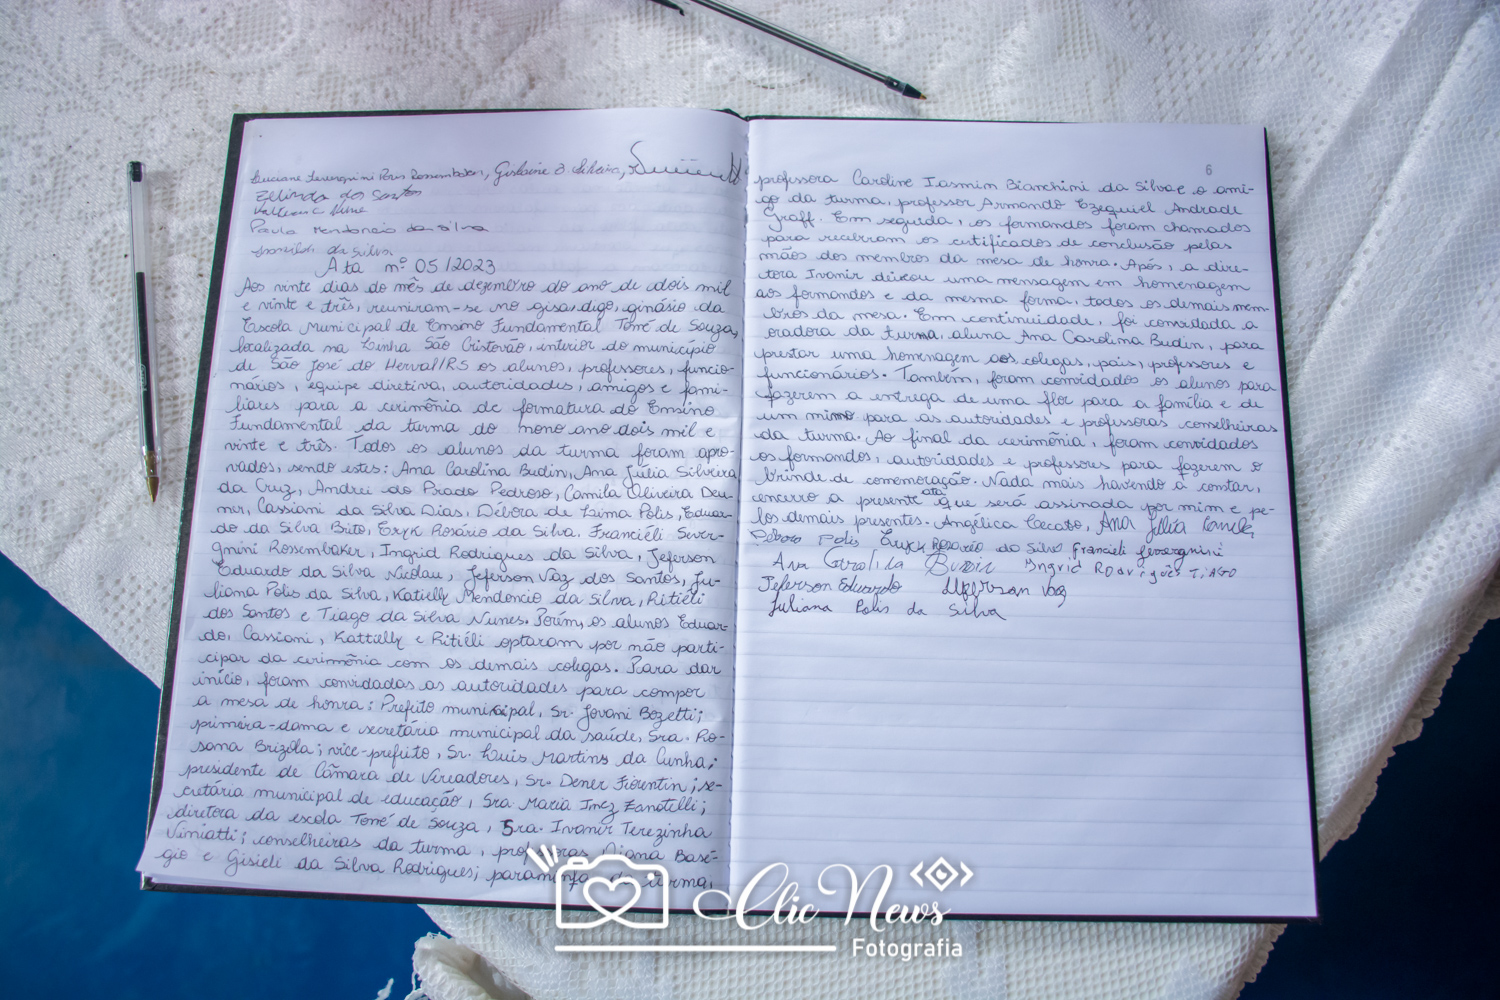 Luciane Severgnini Reis Rosembaker, Gislaine B. Silveira,
Zelinda dos Santos
Paula Mendoncio da silva
da Silva
Ata nº 05/2023
Aos vinte dias do mês de dezembro do ano de dois mil
e vinte e três, reuniram-se no gisa, digo, ginásio da
Escola Municipal de Ensino Fundamental Tomé de Souza,
localizada na Linha São Cristovão, interior do município
de São José do Herval/RS os alunos, professores, funcio-
nários, equipe diretiva, autoridades, amigos e fami-
liares para a cerimônia de formatura do Ensino
Fundamental da turma do nono ano dois mil e
vinte e três. Todos os alunos da turma foram apro-
vados, sendo estes: Ana Carolina Budin, Ana Júlia Silveira
da Cruz, Andrei do Prado Pedroso, Camila Oliveira Deu-
ner, Cassiani da Silva Dias, Débora de Lima Polis, Eduar-
do da Silva Bito, Eryk Rosário da Silva, Franciéli Sever-
gnini Rosembaker, Ingrid Rodrigues da Silva, Jeferson
Eduardo da Silva Nicolau, Jeferson Vaz dos Santos, Ju-
liana Polis da Silva, Katielly Mendoncio da Silva, Ritiéli
dos Santos e Tiago da Silva Nunes. Porém, os alunos Eduar-
do, Cassiani, Kattielly e Ritiéli optaram por não parti-
cipar da cerimônia com os demais colegas. Para dar
início, foram convidadas as autoridades para compor
a mesa de honra: Prefeito municipal, Sr. Jovani Bozetti;
primeira-dama e secretária municipal da saúde, Sra. Ro-
sana Brizola; vice-prefeito, Sr. Luis Martins da Cunha;
presidente de Câmara de Vereadores, Sr. Dener Fiorentin; se-
cretária municipal de educação, Sra Maria Inez Zanotelli;
diretora da escola Tomé de Souza, Sra. Ivanir Terezinha
Vimiatti; conselheiras da turma, professoras Diana Basé-
gio e Gisieli da Silva Rodrigues; paraninfa da turma,
6
professora Caroline Iasmin Bianchini da Silva e o ami-
go da turma, professor Armando Ezequiel Andrade
Graff. Em seguida, os formandos foram chamados
para receberam os certificados de conclusão pelas
mãos dos membros da mesa de honra. Após, a dire-
tora Ivanir deixou uma mensagem em homenagem
aos formandos e da mesma forma, todos os demais mem-
bros da mesa. Em continuidade, foi convidada a
oradora da turma, aluna Ana Carolina Budin, para
prestar uma homenagem aos colegas, pais, professores e
funcionários. Também, foram convidados os alunos para
fazerem a entrega de uma flor para a família e de
um mimo para as autoridades e professoras conselheiras
da turma. Ao final da cerimônia, foram convidados
os formandos, autoridades e professores para fazerem o
brinde de comemoração. Nada mais havendo a constar,
encerro a presente ata que será assinada por mim e pe-
los demais presentes. Angélica Cecato, Ana Júlia
Débora Polis Eryck Rosario da Silva, Francieli Severgnini
Ana Carolina Budin Ingrid Rodrigues TIAGO
Jeferson Eduardo Jeferson Vaz
Juliana Polis da Silva
Clic News
Fotografia